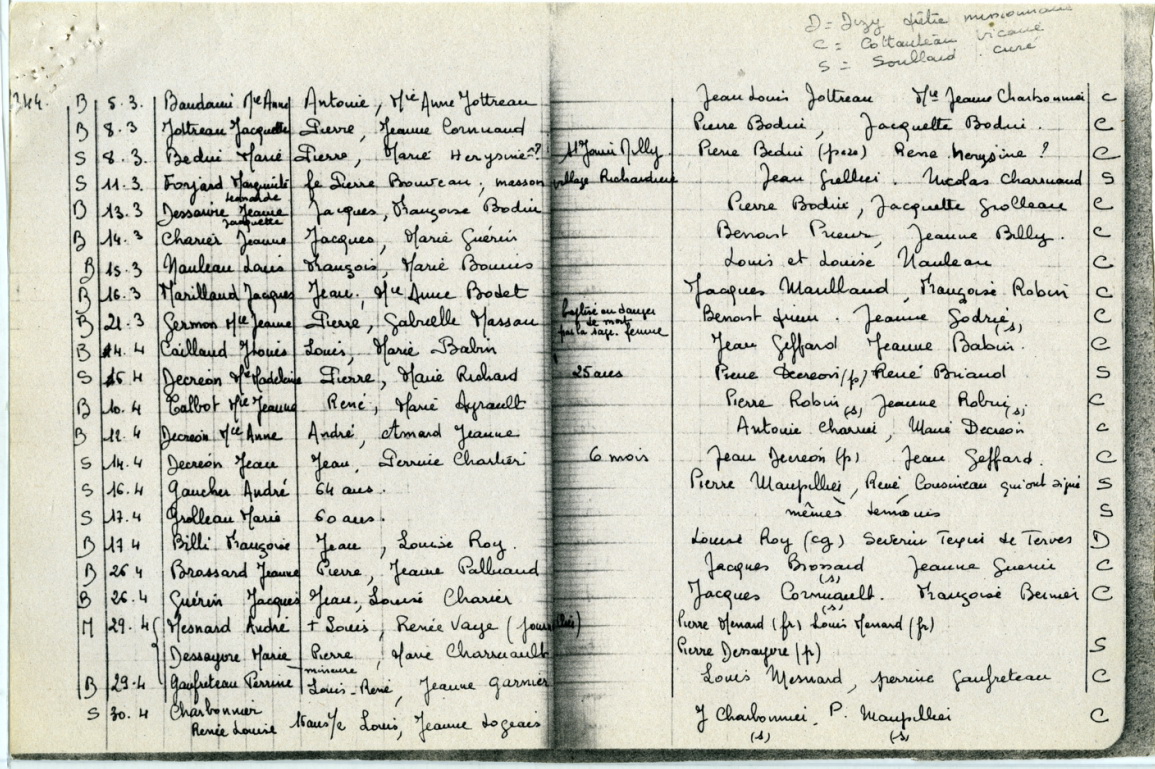 D = Dizy prêtre missionnaire
C = Cottanceau vicaire
S = Soullard curé
B 5.3. Baudouin Mie Anne Antoine, Mie Anne Jottreau Jean Louis Jottreau Mie Jeanne Charbonnier C
B 8.3 Jottreau Jacquette Pierre, Jeanne Cornuaud Pierre Bodui, Jacquette Bodui. C
S 8.3. Bedui Marie Pierre, Marie Herysine? Pierre Bedui (père) Rene Herysine? C
S 11.3. Forjard Marguerite fe Pierre Bouveau, masson village Richardiere Jean Grellier. Nicolas Charruaud S
B 13.3 Dessaivre Jeanne Jacquette Jacques, Françoise Bodin Pierre Bodin, Jacquette Grolleau C
B 14.3 Charier Jeanne Jacques, Marie Guérin Benoist Prieur, Jeanne Billy. C
B 15.3 Nauleau Louis François, Marie Bounis Louis et Louise Nauleau C
B 16.3 Marillaud Jacques Jean. Mie Anne Bodet Jacques Maullaud, Françoise Robin C
B 21.3 Germon Mie Jeanne Pierre, Gabrielle Massau baptisé en danger de mort par la sage femme Benoist Jeanne Godrie (s) C
B 4.4 Caillaud Louis, Marie Babin Jean Geffard Jeanne Babin. C
S 5.4 Decreon Mie Madeleine Pierre, Marie Richard 25 ans Pierre Decreon (p) René Briand S
B 10.4 Talbot Mie Jeanne René, Marie Ayrault Pierre Robin (s), Jeanne Robin (s) C
B 12.4 Decreon Mie Anne André, Amard Jeanne Antoine Charrier, Marie Decreon c
S 14.4 Decreon Jean Jean, Perrine Chartier 6 mois Jean Decreon (p) Jean Geffard. C
S 16.4 Gaucher André 64 ans. Pierre Maupillier, René Cousineau qui ont signé S
S 17.4 Grolleau Marie 60 ans. mêmes témoins S
B 17 4 Billi Françoise Jean, Louise Roy. Louise Roy (cg) Severin Texier de Terves D
B 26 4 Brossard Jeanne Pierre, Jeanne Palluaud Jacques Brossard (s) Jeanne Guerin C
B 26.4 Guérin Jacques Jean, Louise Charier Jacques Cornuault. (s) Françoise Bernier C
M 29.4 Mesnard André + Louis, Renée Vaye Pierre Menard (fr) Louis Menard (fr)
Dessayvre Marie mineure Pierre, Marie Charruault Pierre Dessayvre (p) S
B 29.4 Gaufreteau Perrine Louis-René, Jeanne Garnier Louis Mesnard, perrine Gaufreteau C
S 30.4 Charbonnier Renée Louise ans 1/2 Louis, Jeanne Logeais J Charbonnier (s). P. Maupillier (s) C